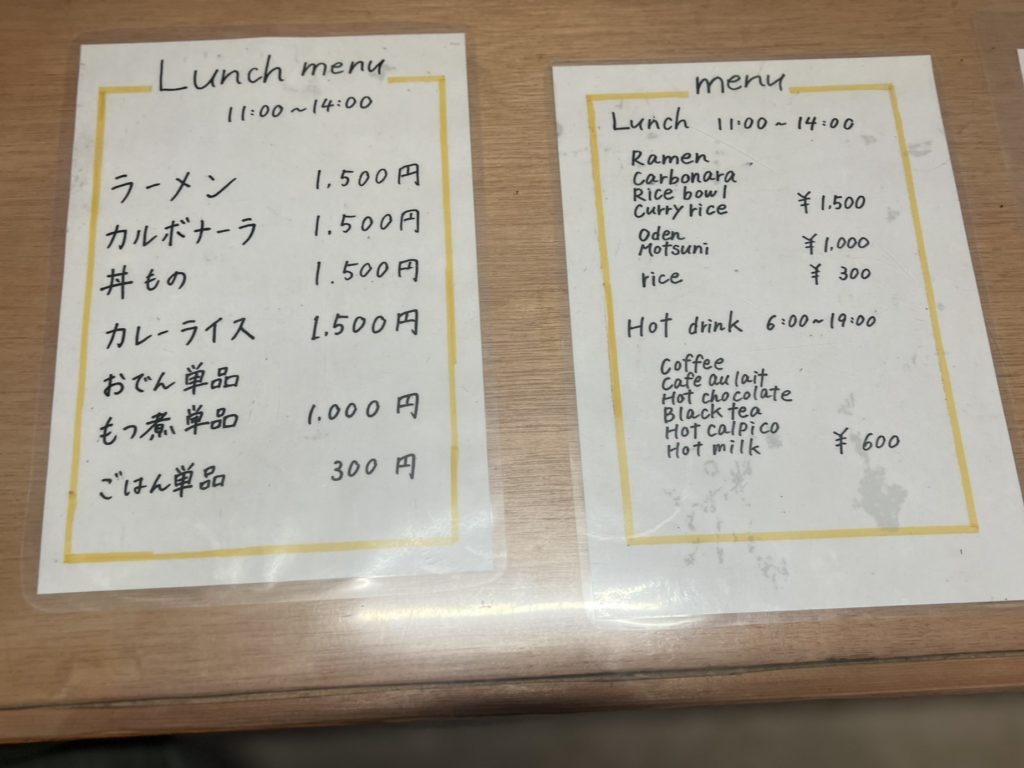 Lunch menu
11:00～14:00
ラーメン 1,500円
カルボナーラ 1,500円
丼もの 1.500円
カレーライス 1,500円
おでん単品
もつ煮単品 1,000円
ごはん単品 300円
menu
Lunch 11:00～14:00
Ramen
Carbonara
Rice bowl
Curry rice ¥1,500
Oden
Motsuni ¥1,000
rice ¥300
Hot drink 6:00～19:00
Coffee
Cafe au lait
Hot chocolate
Black tea
Hot calpico
Hot milk ¥600